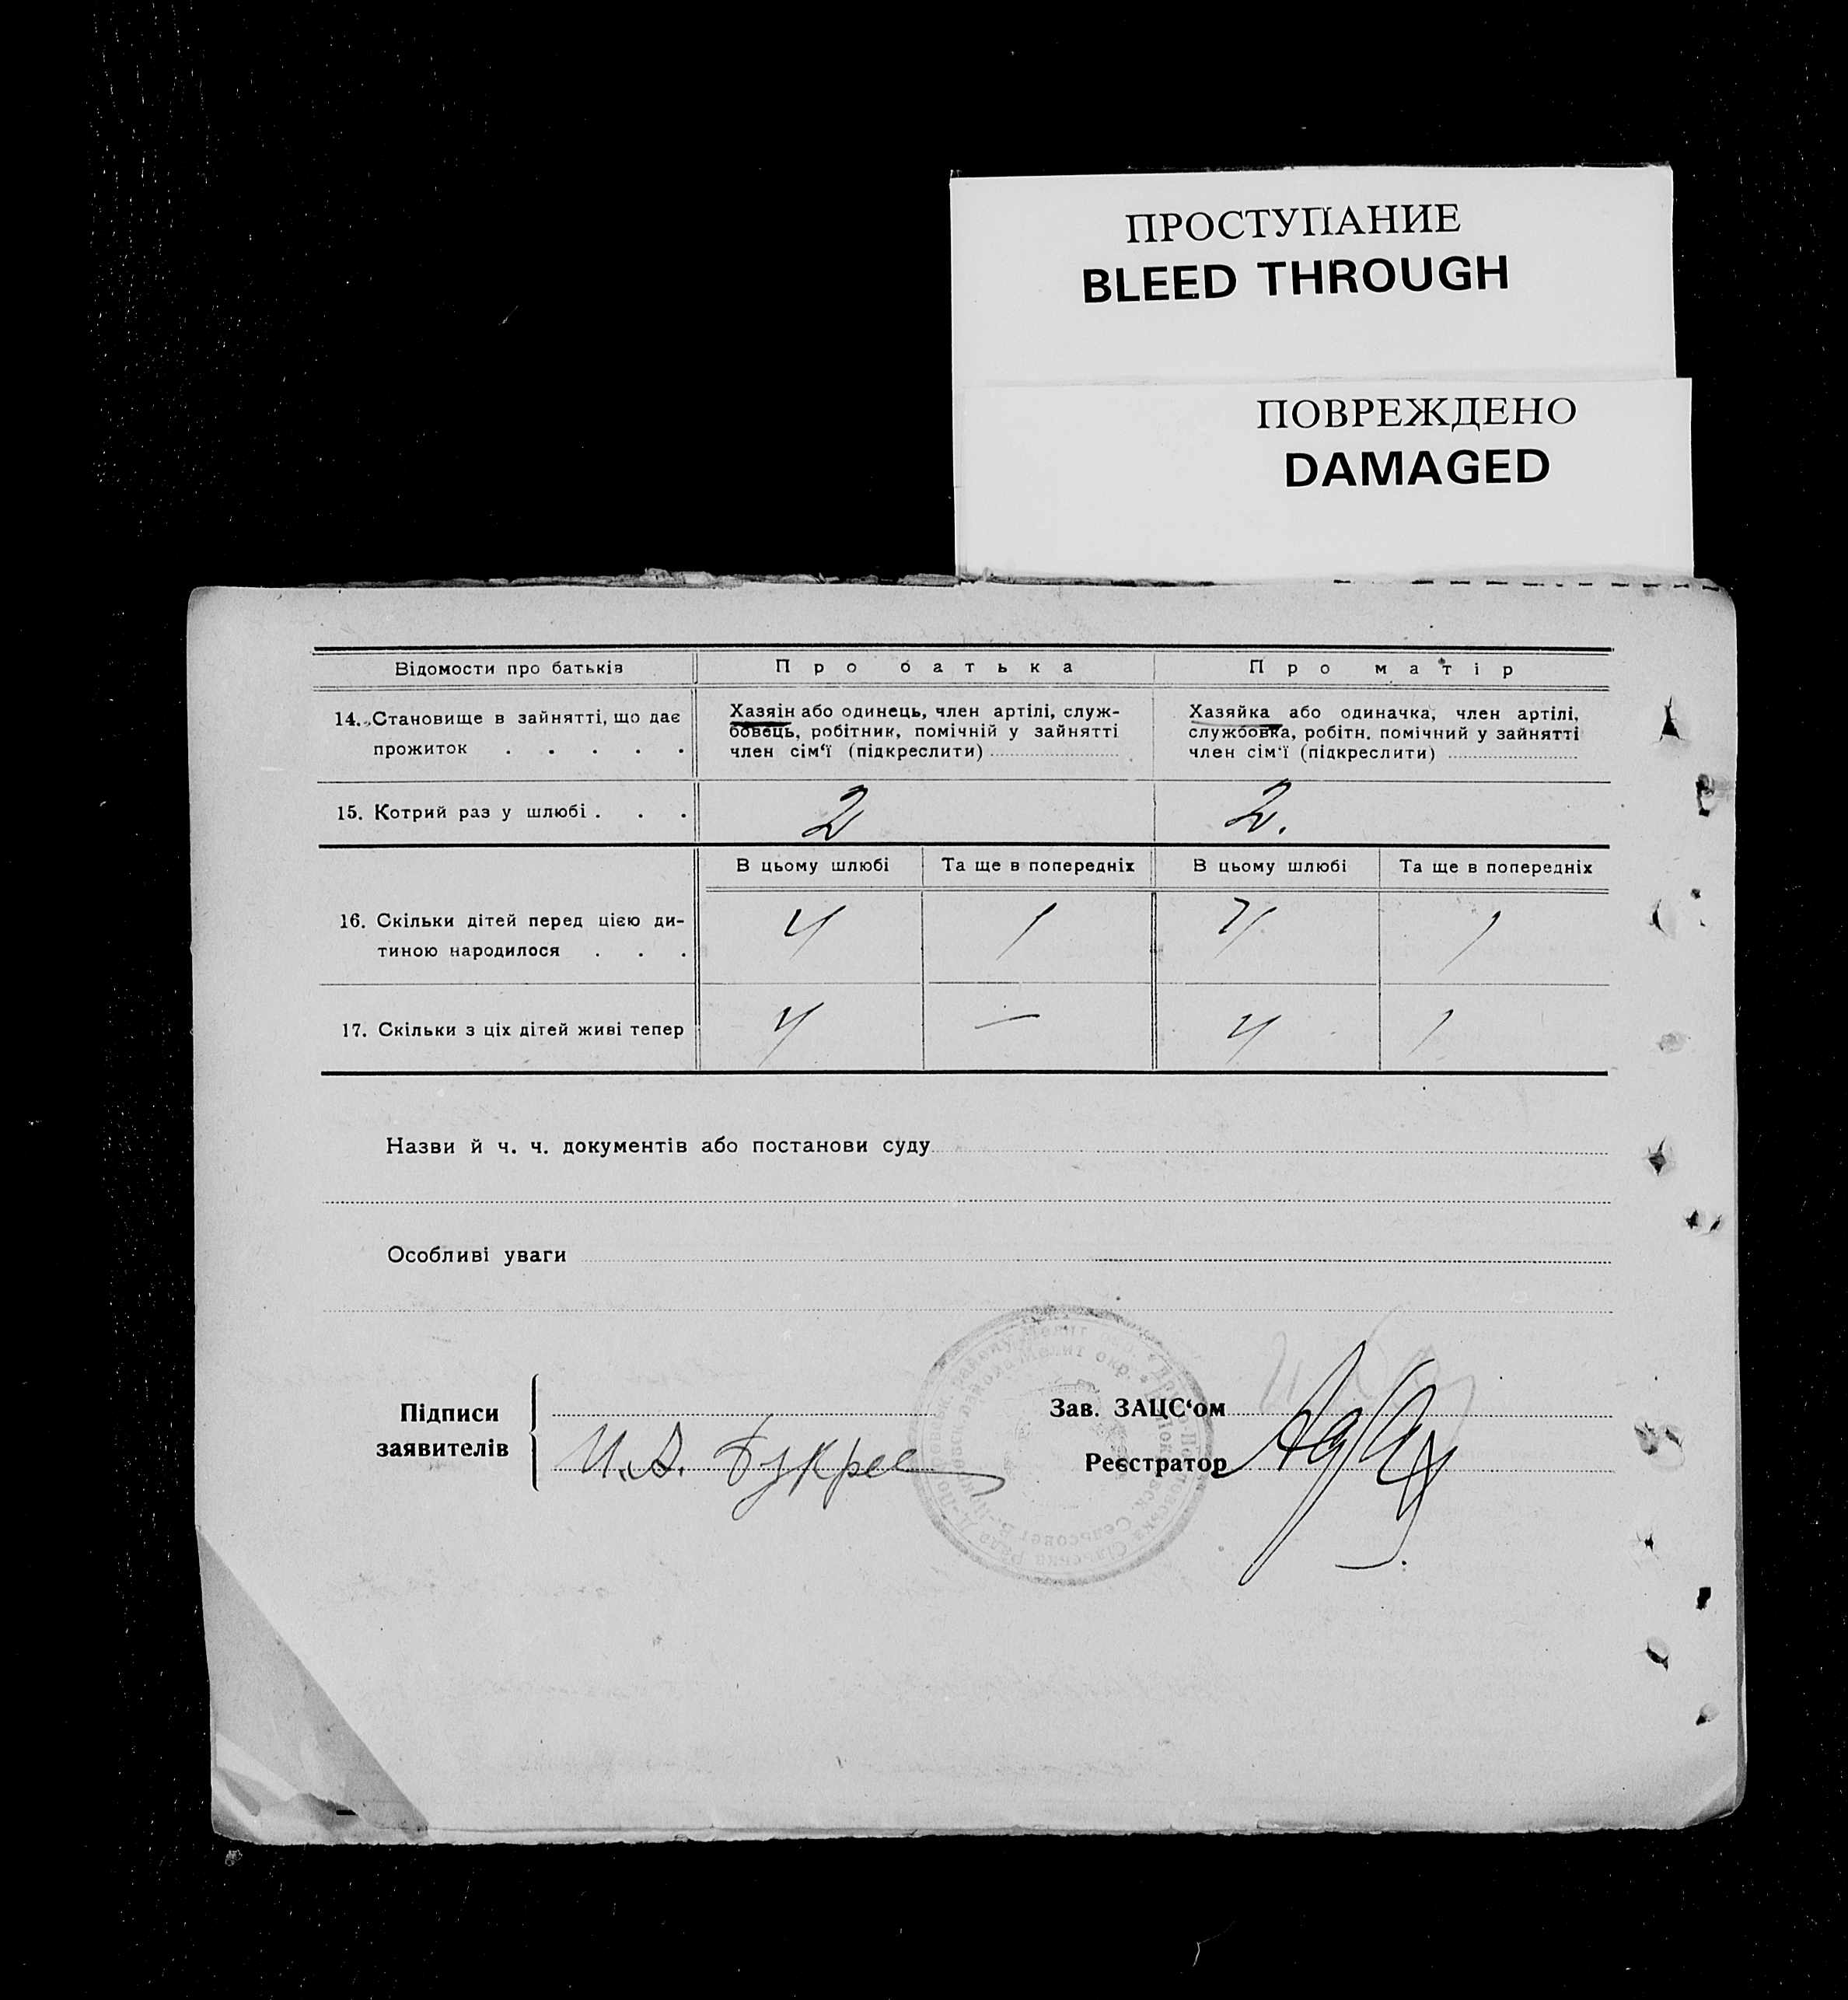 ПРОСТУПАНИЕ
BLEED THROUGH
ПОВРЕЖДЕНО
DAMAGED
Відомости про батьків Про батька Про матір
14. Становище в зайнятті, що дає прожиток . . . . .
Хазяін або одинець, член артілі, служ-
бовець, робітник, помічній у зайнятті
член сім‘ї (підкреслити)
Хазяйка або одиначка, член артілі,
службовка, робітн. помічний у зайнятті
член сім‘ї (підкреслити)
15. Котрий раз у шлюбі . . . 2 2.
В цьому шлюбі Та ще в попередніх В цьому шлюбі Та ще в попередніх
16. Скільки дітей перед цією ди-
тиною народилося . . . 4 1 4 1
17. Скільки з ціх дітей живі тепер 4 — 4 1
Назви й ч. ч. документів або постанови суду
Особливі уваги
Підписи
заявителів
И. Д.
Зав. ЗАЦС‘ом
Реєстратор